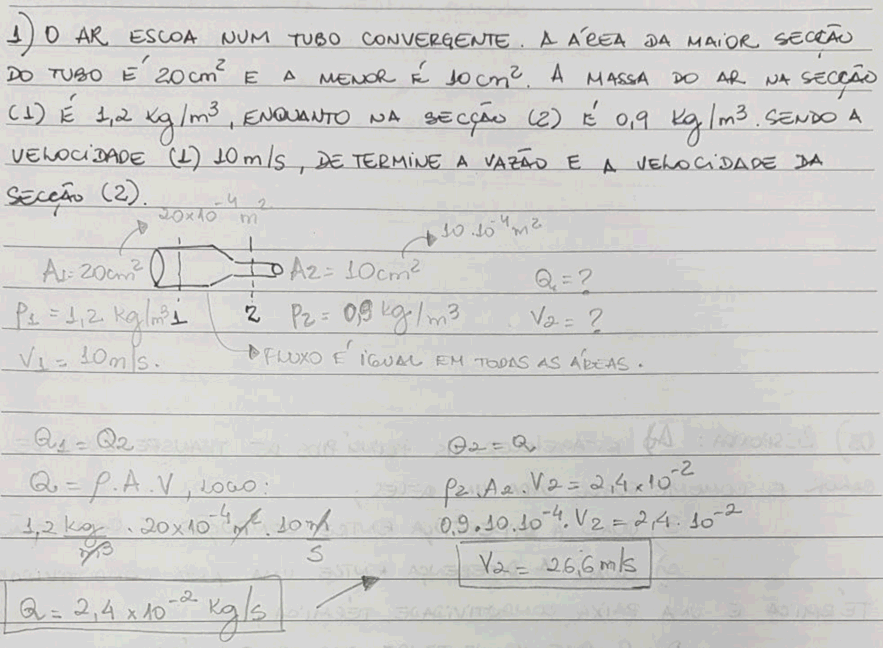 1) O AR ESCOA NUM TUBO CONVERGENTE. A ÁREA DA MAIOR SECÇÃO
DO TUBO É 20cm² E A MENOR É 10cm². A MASSA DO AR NA SECÇÃO
(1) É 1,2 Kg/m³, ENQUANTO NA SECÇÃO (2) É 0,9 Kg/m³. SENDO A
VELOCIDADE (1) 10m/s, DETERMINE A VAZÃO E A VELOCIDADE DA
SECÇÃO (2).
20x10⁻⁴ m²
10.10⁻⁴m²
A1=20cm² A2=10cm² Q=?
ρ1=1,2 kg/m³ 1 2 ρ2=0,9 kg/m³ V2=?
V1=10m/s. FLUXO É IGUAL EM TODAS AS ÁREAS.
Q1=Q2 Q2=Q
Q=ρ.A.V, LOGO: ρ2.A2.V2=2,4x10⁻²
1,2 kg/m³ . 20x10⁻⁴m² . 10m/s 0,9.10.10⁻⁴.V2=2,4.10⁻²
V2= 26,6m/s
Q=2,4x10⁻² Kg/s